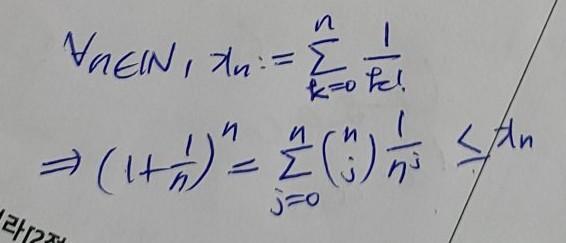 ∀n∈ℕ, xₙ := ∑_{k=0}^{n} 1/k!
⇒ (1+1/n)^n = ∑_{j=0}^{n} (n j) 1/n^j ≤ xₙ